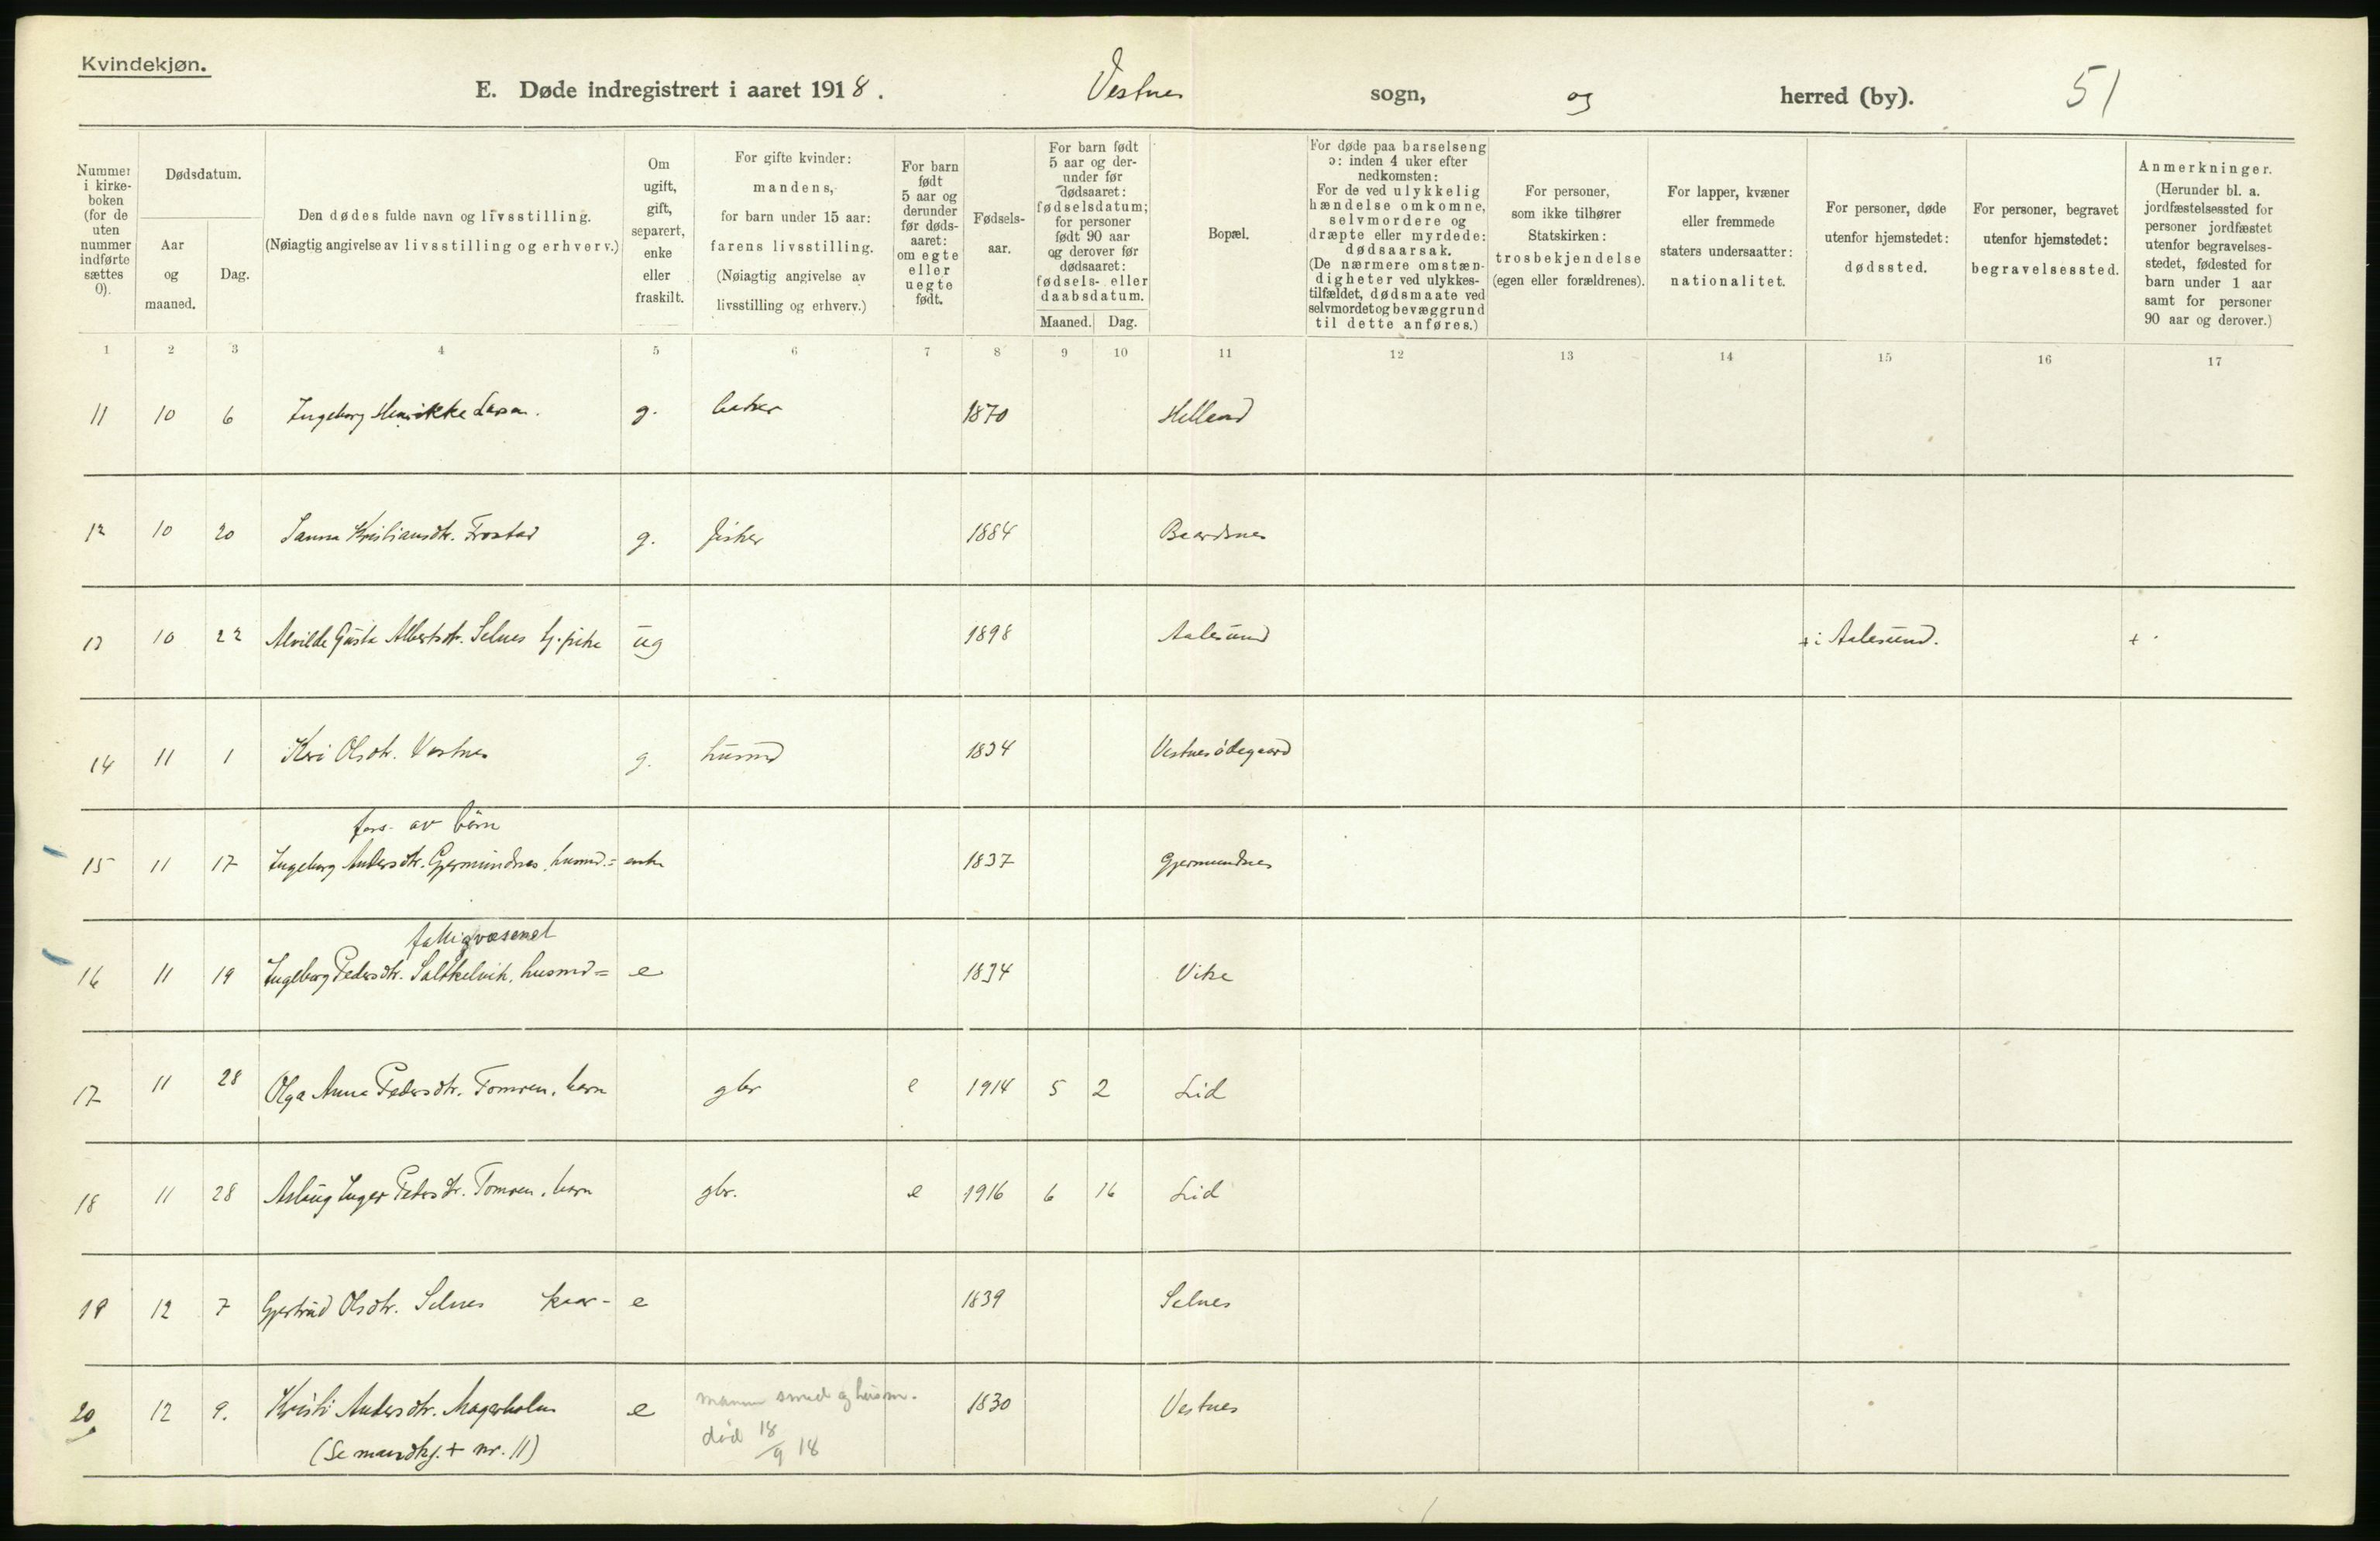 Kvindekjøn.
E. Døde indregistrert i aaret 1918. Vestnes sogn, og herred (by). 51
Nummer i kirke-boken (for de uten nummer indførte sættes 0).
Dødsdatum.
Aar og maaned.
Dag.
Den dødes fulde navn og livsstilling.
(Nøiagtig angivelse av livsstilling og erhverv.)
Om ugift, gift, separert, enke eller fraskilt.
For gifte kvinder: mandens, for barn under 15 aar: farens livsstilling. (Nøiagtig angivelse av livsstilling og erhverv.)
For barn født 5 aar og derunder før døds-aaret: om egte eller uegte født.
Fødsels-aar.
For barn født 5 aar og der-under før dødsaaret: fødselsdatum; for personer født 90 aar og derover før dødsaaret: fødsels- eller daabsdatum.
Maaned. Dag.
Bopæl.
For døde paa barselseng ɔ: inden 4 uker efter nedkomsten: For de ved ulykkelig hændelse omkomne, selvmordere og dræpte eller myrdede: dødsaarsak. (De nærmere omstæn-digheter ved ulykkes-tilfældet, dødsmaate ved selvmordet og bevæggrund til dette anføres.)
For personer, som ikke tilhører Statskirken: trosbekjendelse (egen eller forældrenes).
For lapper, kvæner eller fremmede staters undersaatter: nationalitet.
For personer, døde utenfor hjemstedet: dødssted.
For personer, begravet utenfor hjemstedet: begravelsessted.
Anmerkninger. (Herunder bl. a. jordfæstelsessted for personer jordfæstet utenfor begravelses-stedet, fødested for barn under 1 aar samt for personer 90 aar og derover.)
1 2 3 4 5 6 7 8 9 10 11 12 13 14 15 16 17
11 10 6 Ingeborg Henrikke Larsen. g. baker 1870 Helland
12 10 20 Sanna Kristiansdtr. Frostad g. fisker 1884 Baardsnes
13 10 22 Alvilde Gusta Albertsdtr. Selnes tj. pike ug 1898 Aalesund + i Aalesund. +
14 11 1 Kari Olsdtr. Vestnes g. husmd 1834 Vestnesødegaard
fors. av børn
15 11 17 Ingeborg Andersdtr. Gjermundnes, husmd.= enke 1837 Gjermundnes
fattigvæsenet
16 11 19 Ingeborg Pedersdtr. Saltkelvik, husmd= e 1834 Vike
17 11 28 Olga Anna Pedersdtr. Tomren, barn gbr e 1914 5 2 Lid
18 11 28 Aslaug Inger Pedersdtr. Tomren, barn gbr. e 1916 6 16 Lid
19 12 7 Gjertrud Olsdtr. Selnes kaar- e 1839 Selnes
20 12 9. Kristi Andersdtr. Magerholm e mannen smed og husm. 1830 Vestnes
(Se mandkj. + nr. 11) død 18/9 18